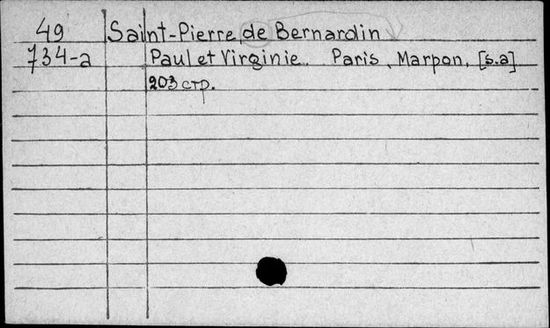 49 Saint-Pierre de Bernardin
734-a Paul et Virginie. Paris, Marpon, [s.a]
203 стр.